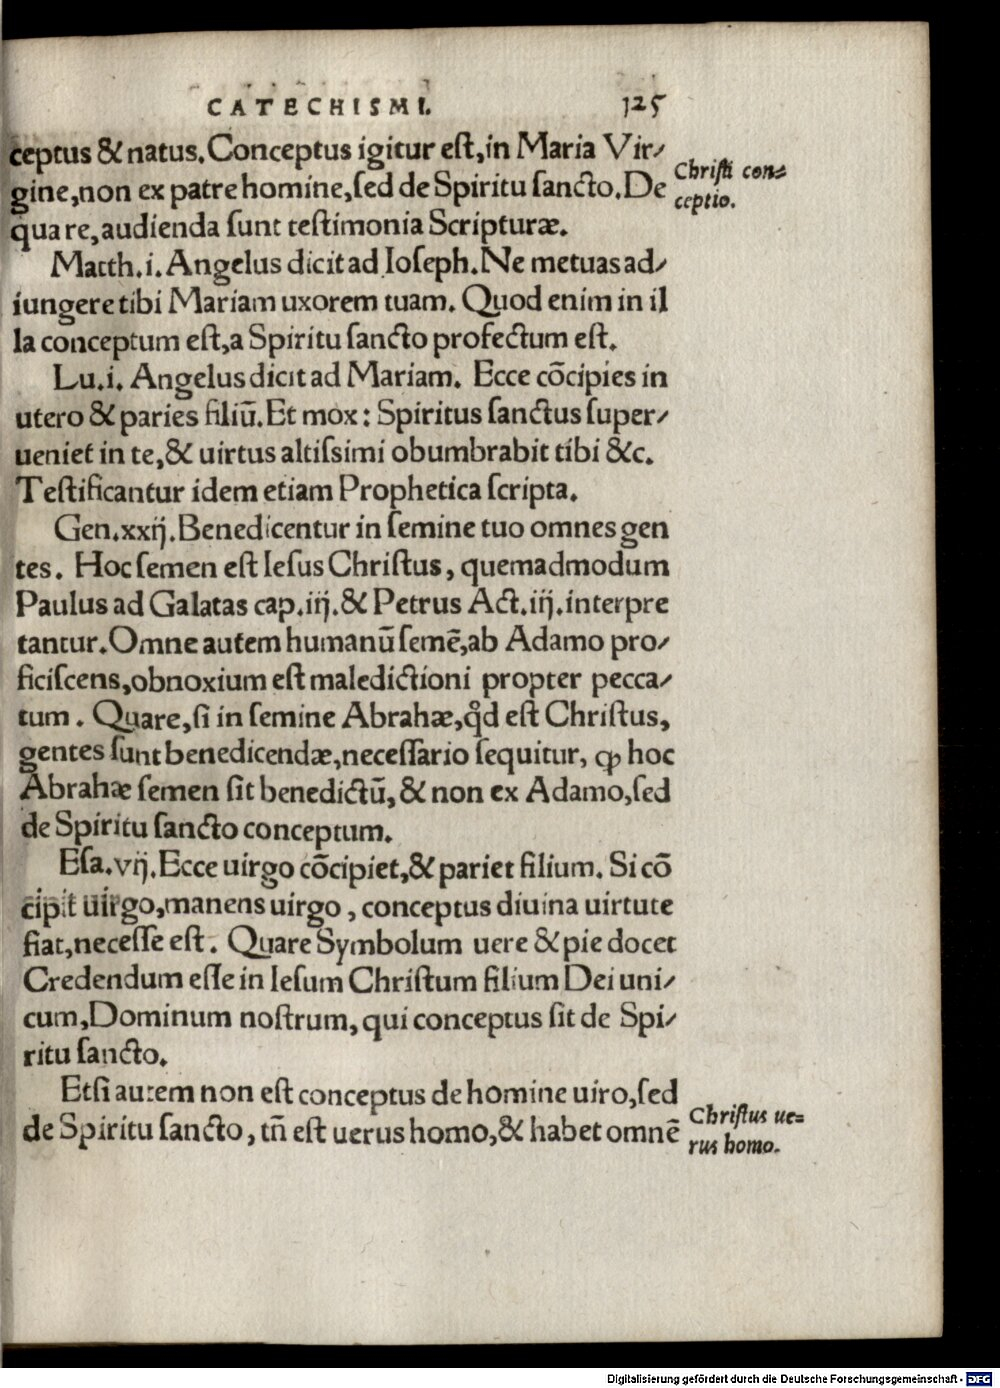 CATECHISMI. 125
ceptus & natus. Conceptus igitur eſt, in Maria Vir⸗
gine, non ex patre homine, ſed de Spiritu ſancto. De
Chriſti con⸗
ceptio.
qua re, audienda ſunt teſtimonia Scripturæ.
Matth. i. Angelus dicit ad Ioſeph. Ne metuas ad⸗
iungere tibi Mariam uxorem tuam. Quod enim in il
la conceptum eſt, a Spiritu ſancto profectum eſt.
Lu. i. Angelus dicit ad Mariam. Ecce cõcipies in
utero & paries filiũ. Et mox: Spiritus ſanctus ſuper⸗
ueniet in te, & uirtus altiſsimi obumbrabit tibi &c.
Teſtificantur idem etiam Prophetica ſcripta.
Gen. xxij. Benedicentur in ſemine tuo omnes gen
tes. Hoc ſemen eſt Ieſus Chriſtus, quemadmodum
Paulus ad Galatas cap. iij. & Petrus Act. iij. interpre
tantur. Omne autem humanũ ſemẽ, ab Adamo pro⸗
ficiſcens, obnoxium eſt maledictioni propter pecca⸗
tum. Quare, ſi in ſemine Abrahæ, qd̛ eſt Chriſtus,
gentes ſunt benedicendæ, neceſſario ſequitur, ꝙ hoc
Abrahæ ſemen ſit benedictũ, & non ex Adamo, ſed
de Spiritu ſancto conceptum.
Eſa. vij. Ecce uirgo cõcipiet, & pariet filium. Si cõ
cipit uirgo, manens uirgo, conceptus diuina uirtute
fiat, neceſſe eſt. Quare Symbolum uere & pie docet
Credendum eſſe in Ieſum Chriſtum filium Dei uni⸗
cum, Dominum noſtrum, qui conceptus ſit de Spi⸗
ritu ſancto.
Etſi autem non eſt conceptus de homine uiro, ſed
de Spiritu ſancto, tñ eſt uerus homo, & habet omnẽ
Chriſtus ue⸗
rus homo.
Digitalisierung gefördert durch die Deutsche Forschungsgemeinschaft - DFG